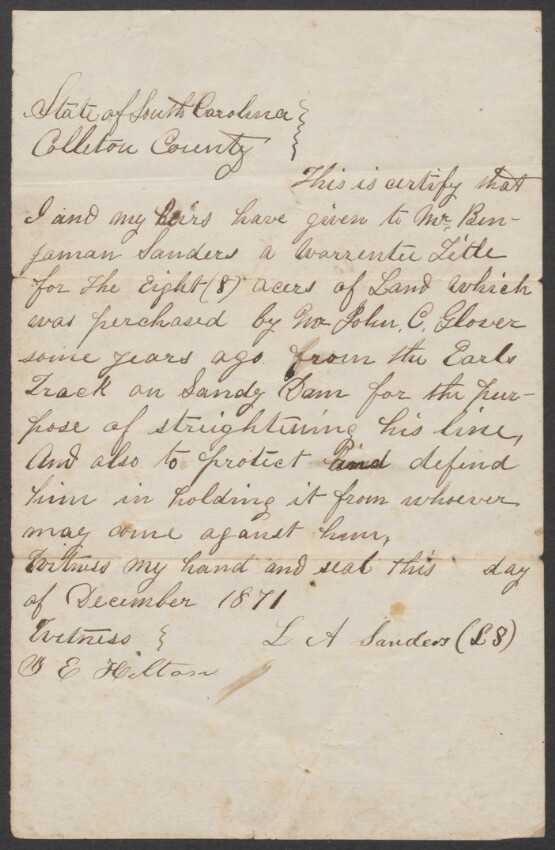 State of South Carolina }
Colleton County }
This is certify that
I and my heirs have given to Mr. Ben-
jaman Sanders a Warrentee Title
for the Eight (8) acers of Land which
was perchased by John. C. Glover
some years ago from the Earls
Track on Sandy Dam for the pur-
pose of streightening his line,
And also to protect and defend
him in holding it from whoever
may come against him,
Witness my hand and seal this day
of December 1871
Witness } L A Sanders (LS)
E Hilton